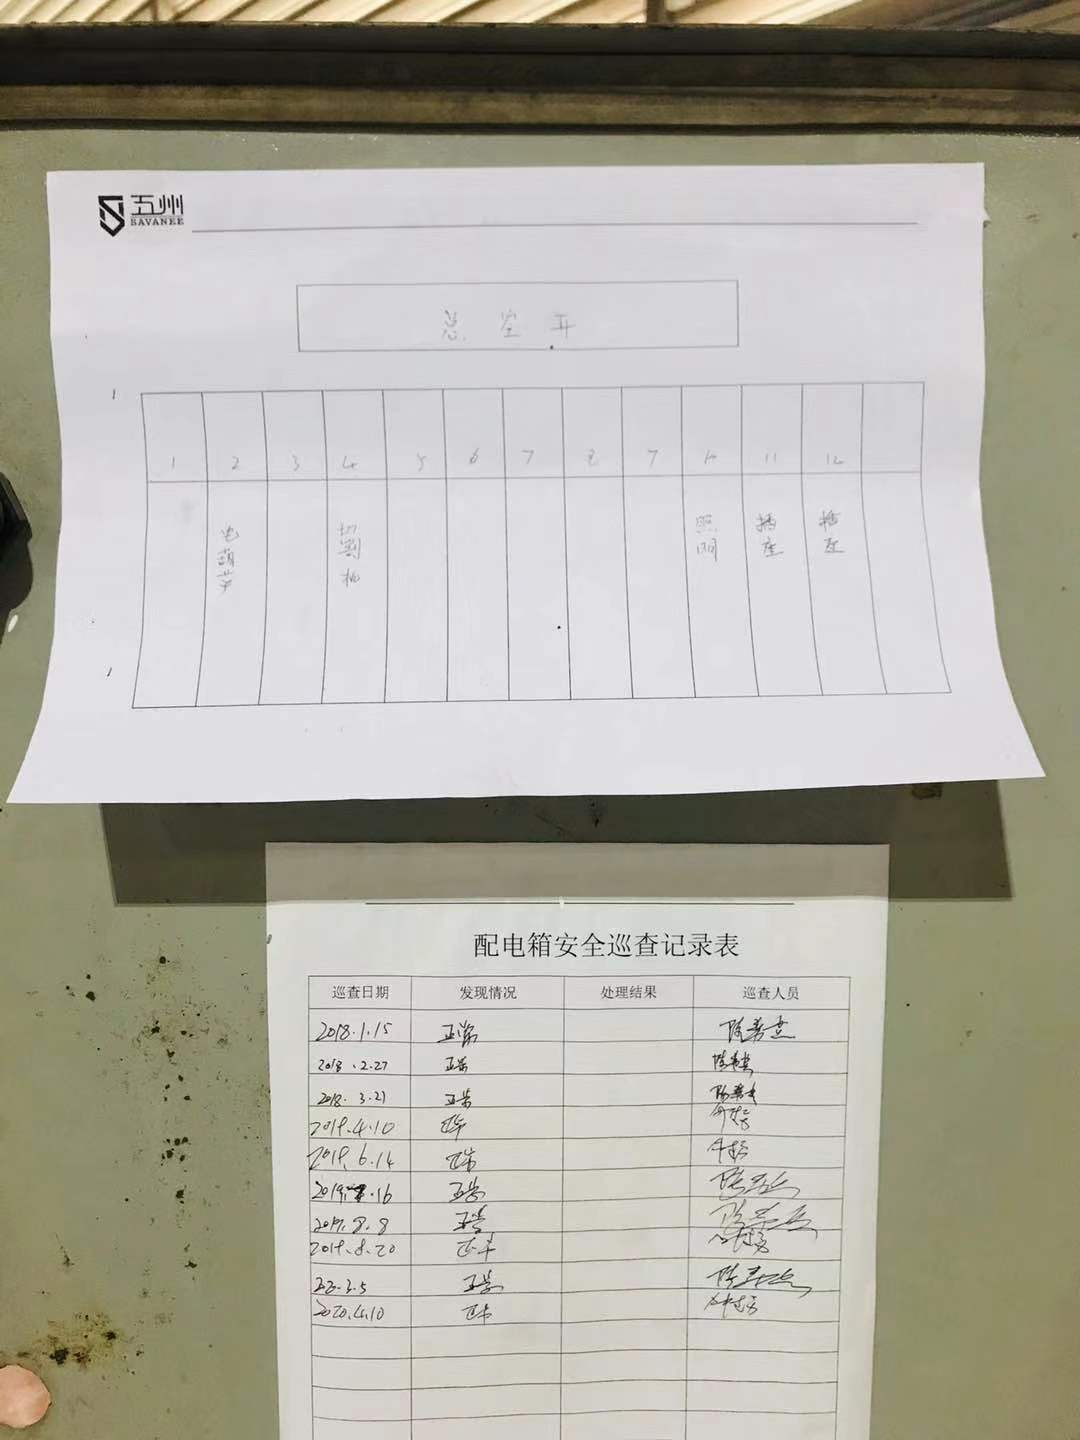 五州
SAVANEE
总空开
1 2 3 4 5 6 7 8 9 10 11 12
电葫芦 切割机 照明 插座 插座
配电箱安全巡查记录表
巡查日期 发现情况 处理结果 巡查人员
2018.1.15 正常
2018.2.27 正常
2018.3.21 正常
2019.4.10 正常
2019.6.14 正常
2019. .16 正常
2019.8.8 正常
2019.8.20 正常
3.5 正常
2020.4.10 正常